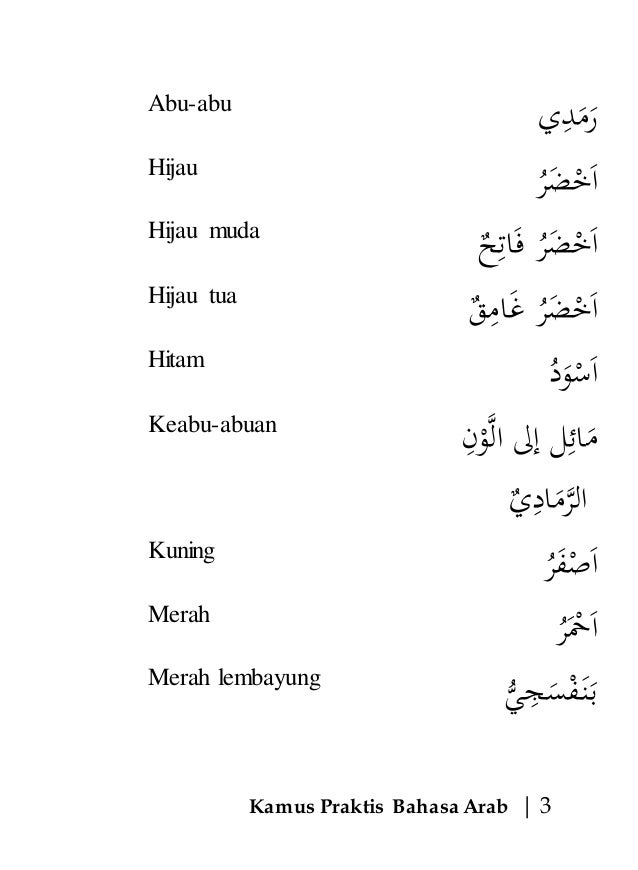 Abu-abu رَمَدِي
Hijau اَخْضَرُ
Hijau muda اَخْضَرُ فَاتِحٌ
Hijau tua اَخْضَرُ غَامِقٌ
Hitam اَسْوَدُ
Keabu-abuan مَائِل إلى الَّوْنِ
الرَّمَادِيٌ
Kuning اَصْفَرُ
Merah اَحْمَرُ
Merah lembayung بَنَفْسَجِيُّ
Kamus Praktis Bahasa Arab | 3